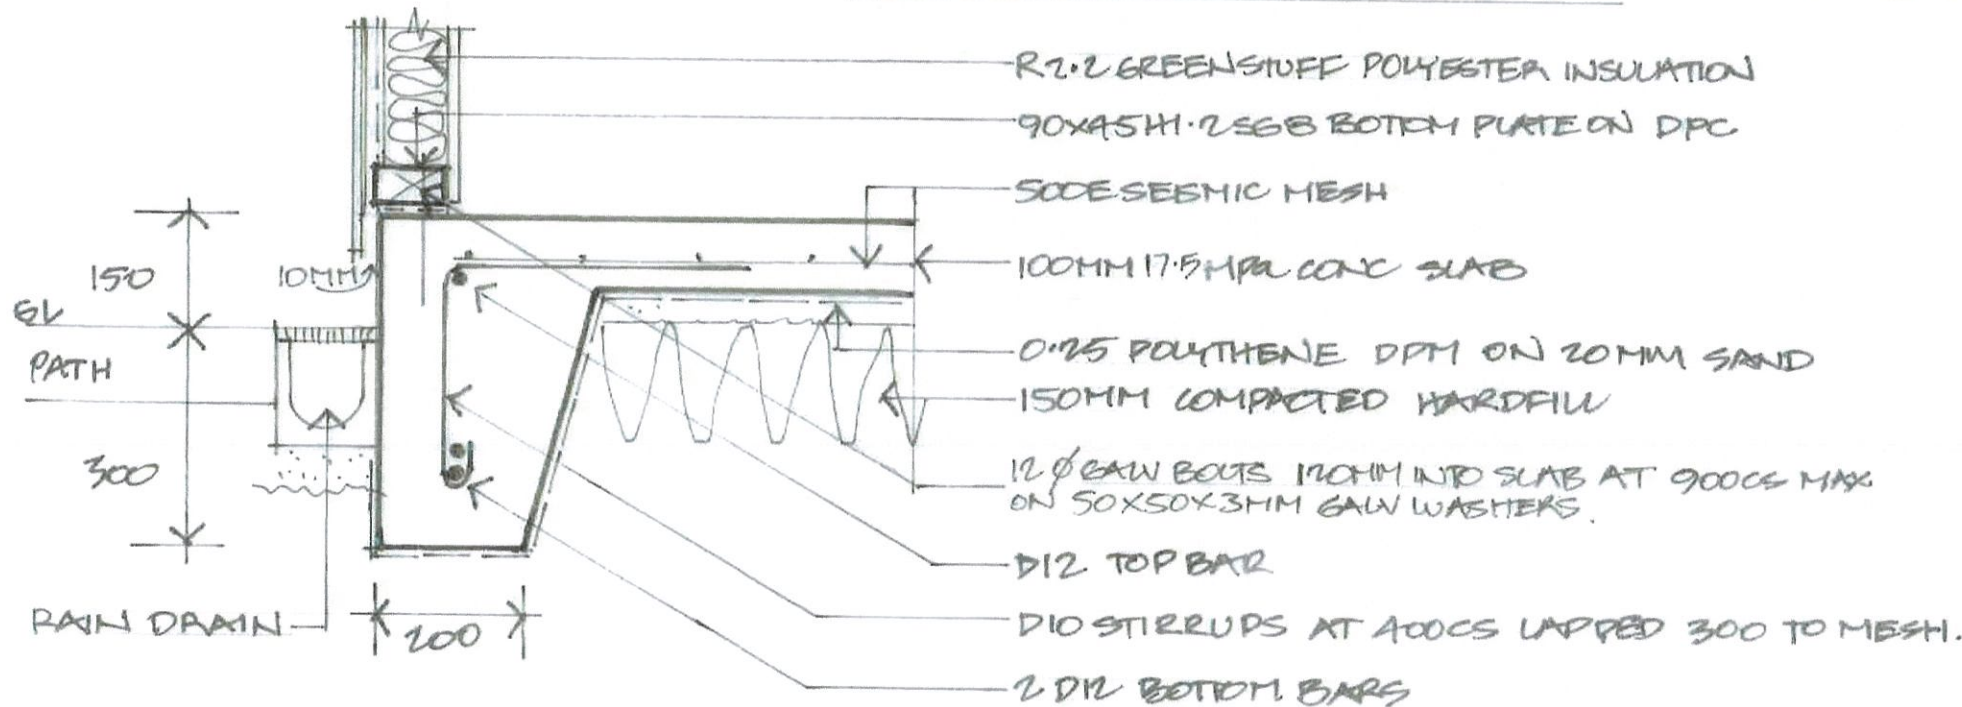 R2.2 GREENSTUFF POLYESTER INSULATION
90X45 H1.2 SG8 BOTTOM PLATE ON DPC
500E SEISMIC MESH
150
10MM
100MM 17.5 MPa CONC SLAB
GL
PATH
0.25 POLYTHENE DPM ON 20MM SAND
150MM COMPACTED HARDFILL
300
12 Ø GALV BOLTS 120MM INTO SLAB AT 900CS MAX
ON 50X50X3MM GALV WASHERS.
D12 TOP BAR
RAIN DRAIN
200
D10 STIRRUPS AT 400CS LAPPED 300 TO MESH.
2 D12 BOTTOM BARS